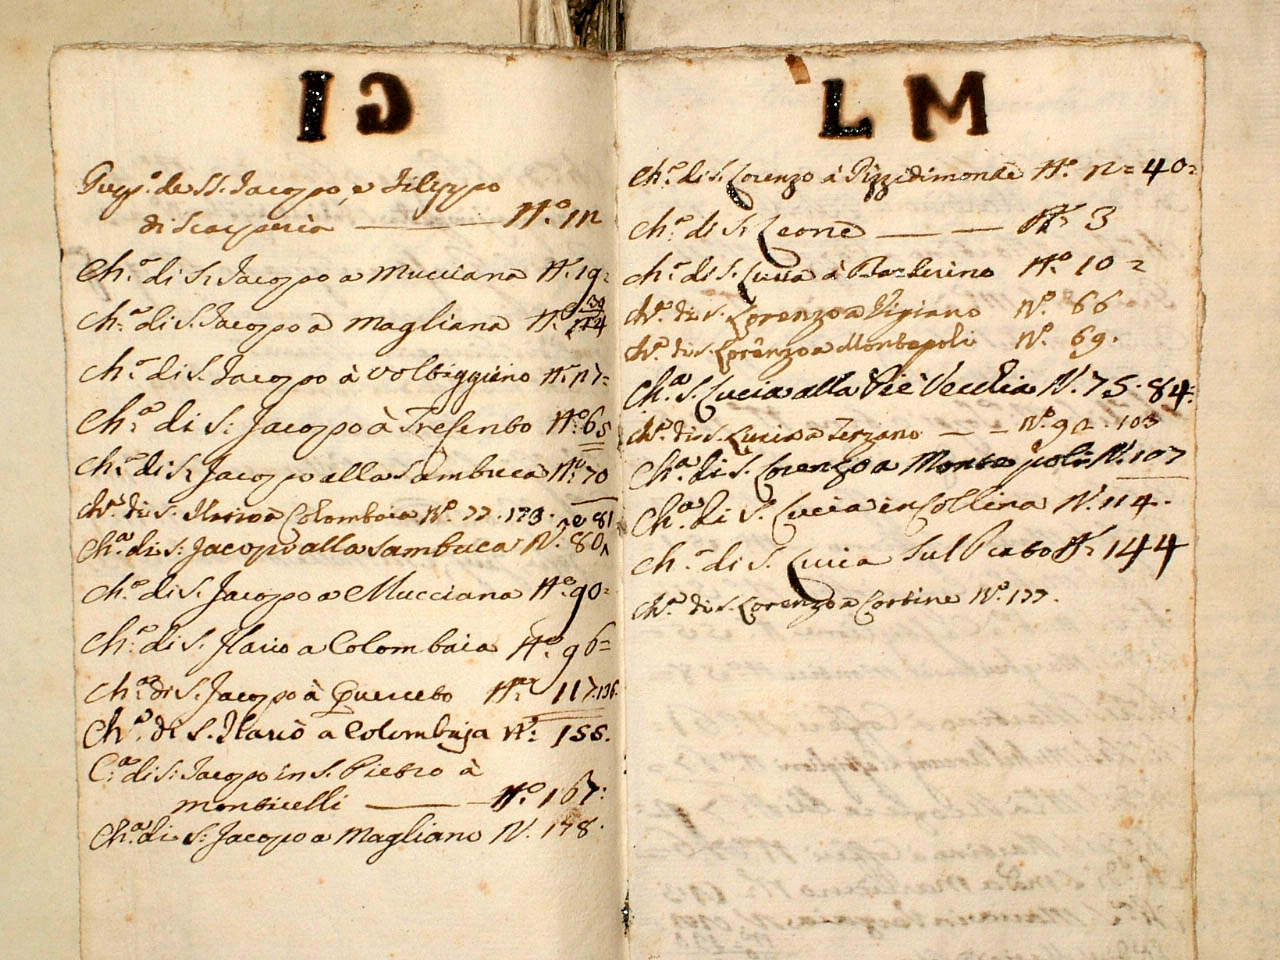 I G
de SS. Jacopo, e Filippo
di Scarperia N.o
Ch.a di S. Jacopo a Mucciana N. 19=
Ch.a di S. Jacopo a Magliana N.
Ch.a di S. Jacopo à Volbiggiano N.
Ch.a di S. Jacopo à Tresento N.o 65
Ch.a di S. Jacopo alla Sambuca N.o 70
Ch.a di S. Ilario a Colombaia N.o 77. 173.
Ch.a di S. Jacopo alla Sambuca N. 80 e 81
Ch.a di S. Jacopo a Mucciana N.o 90=
Ch.a di S. Ilario a Colombaia N.o 96=
Ch.a di S. Jacopo à Querceto N.o 117.136.
Ch.a di S. Ilario a Colombaja N. 155.
C.a di S. Jacopo in S. Pietro à
Monticelli N.o 167.
Ch.a di S. Jacopo a Magliano N. 178.
L M
Ch.a di S. Lorenzo à Pizzidimonte N.o 40=
Ch.a di S. Leone N. 3
Ch.a di S. Lucia à Barberino N.o 10=
Ch.a di S. Lorenzo a Vigiano N.o 66
Ch.a di S. Lorenzo a Montepoli N.o 69.
Ch.a S. Lucia alla Pie Vecchia N. 75. 84.
Ch.a di S. Lucia a Terzano N.o 92. 103
Ch.a di S. Lorenzo a Montepoli N. 107
Ch.a di S. Lucia in Collina N. 114.
Ch.a di S. Lucia Sul Prato N. 144
Ch.a di S. Lorenzo a Cortine N.o 177.